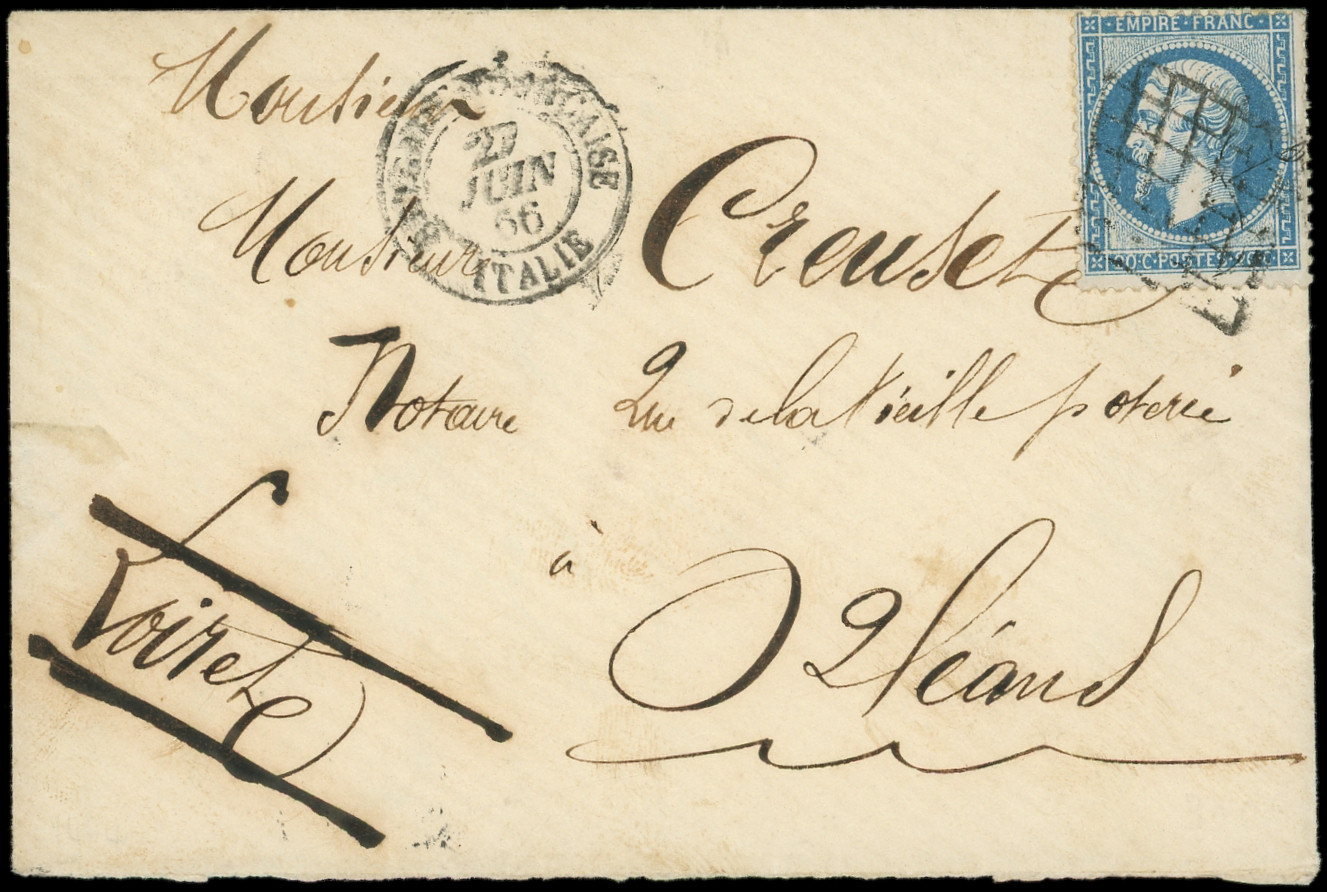 EMPIRE · FRANC ·
Monsieur
27
JUIN
66
ITALIE
Monsieur Creuset
20 · C · POSTES
Notaire Rue de la Vieille poterie
à
Orléans
Loiret